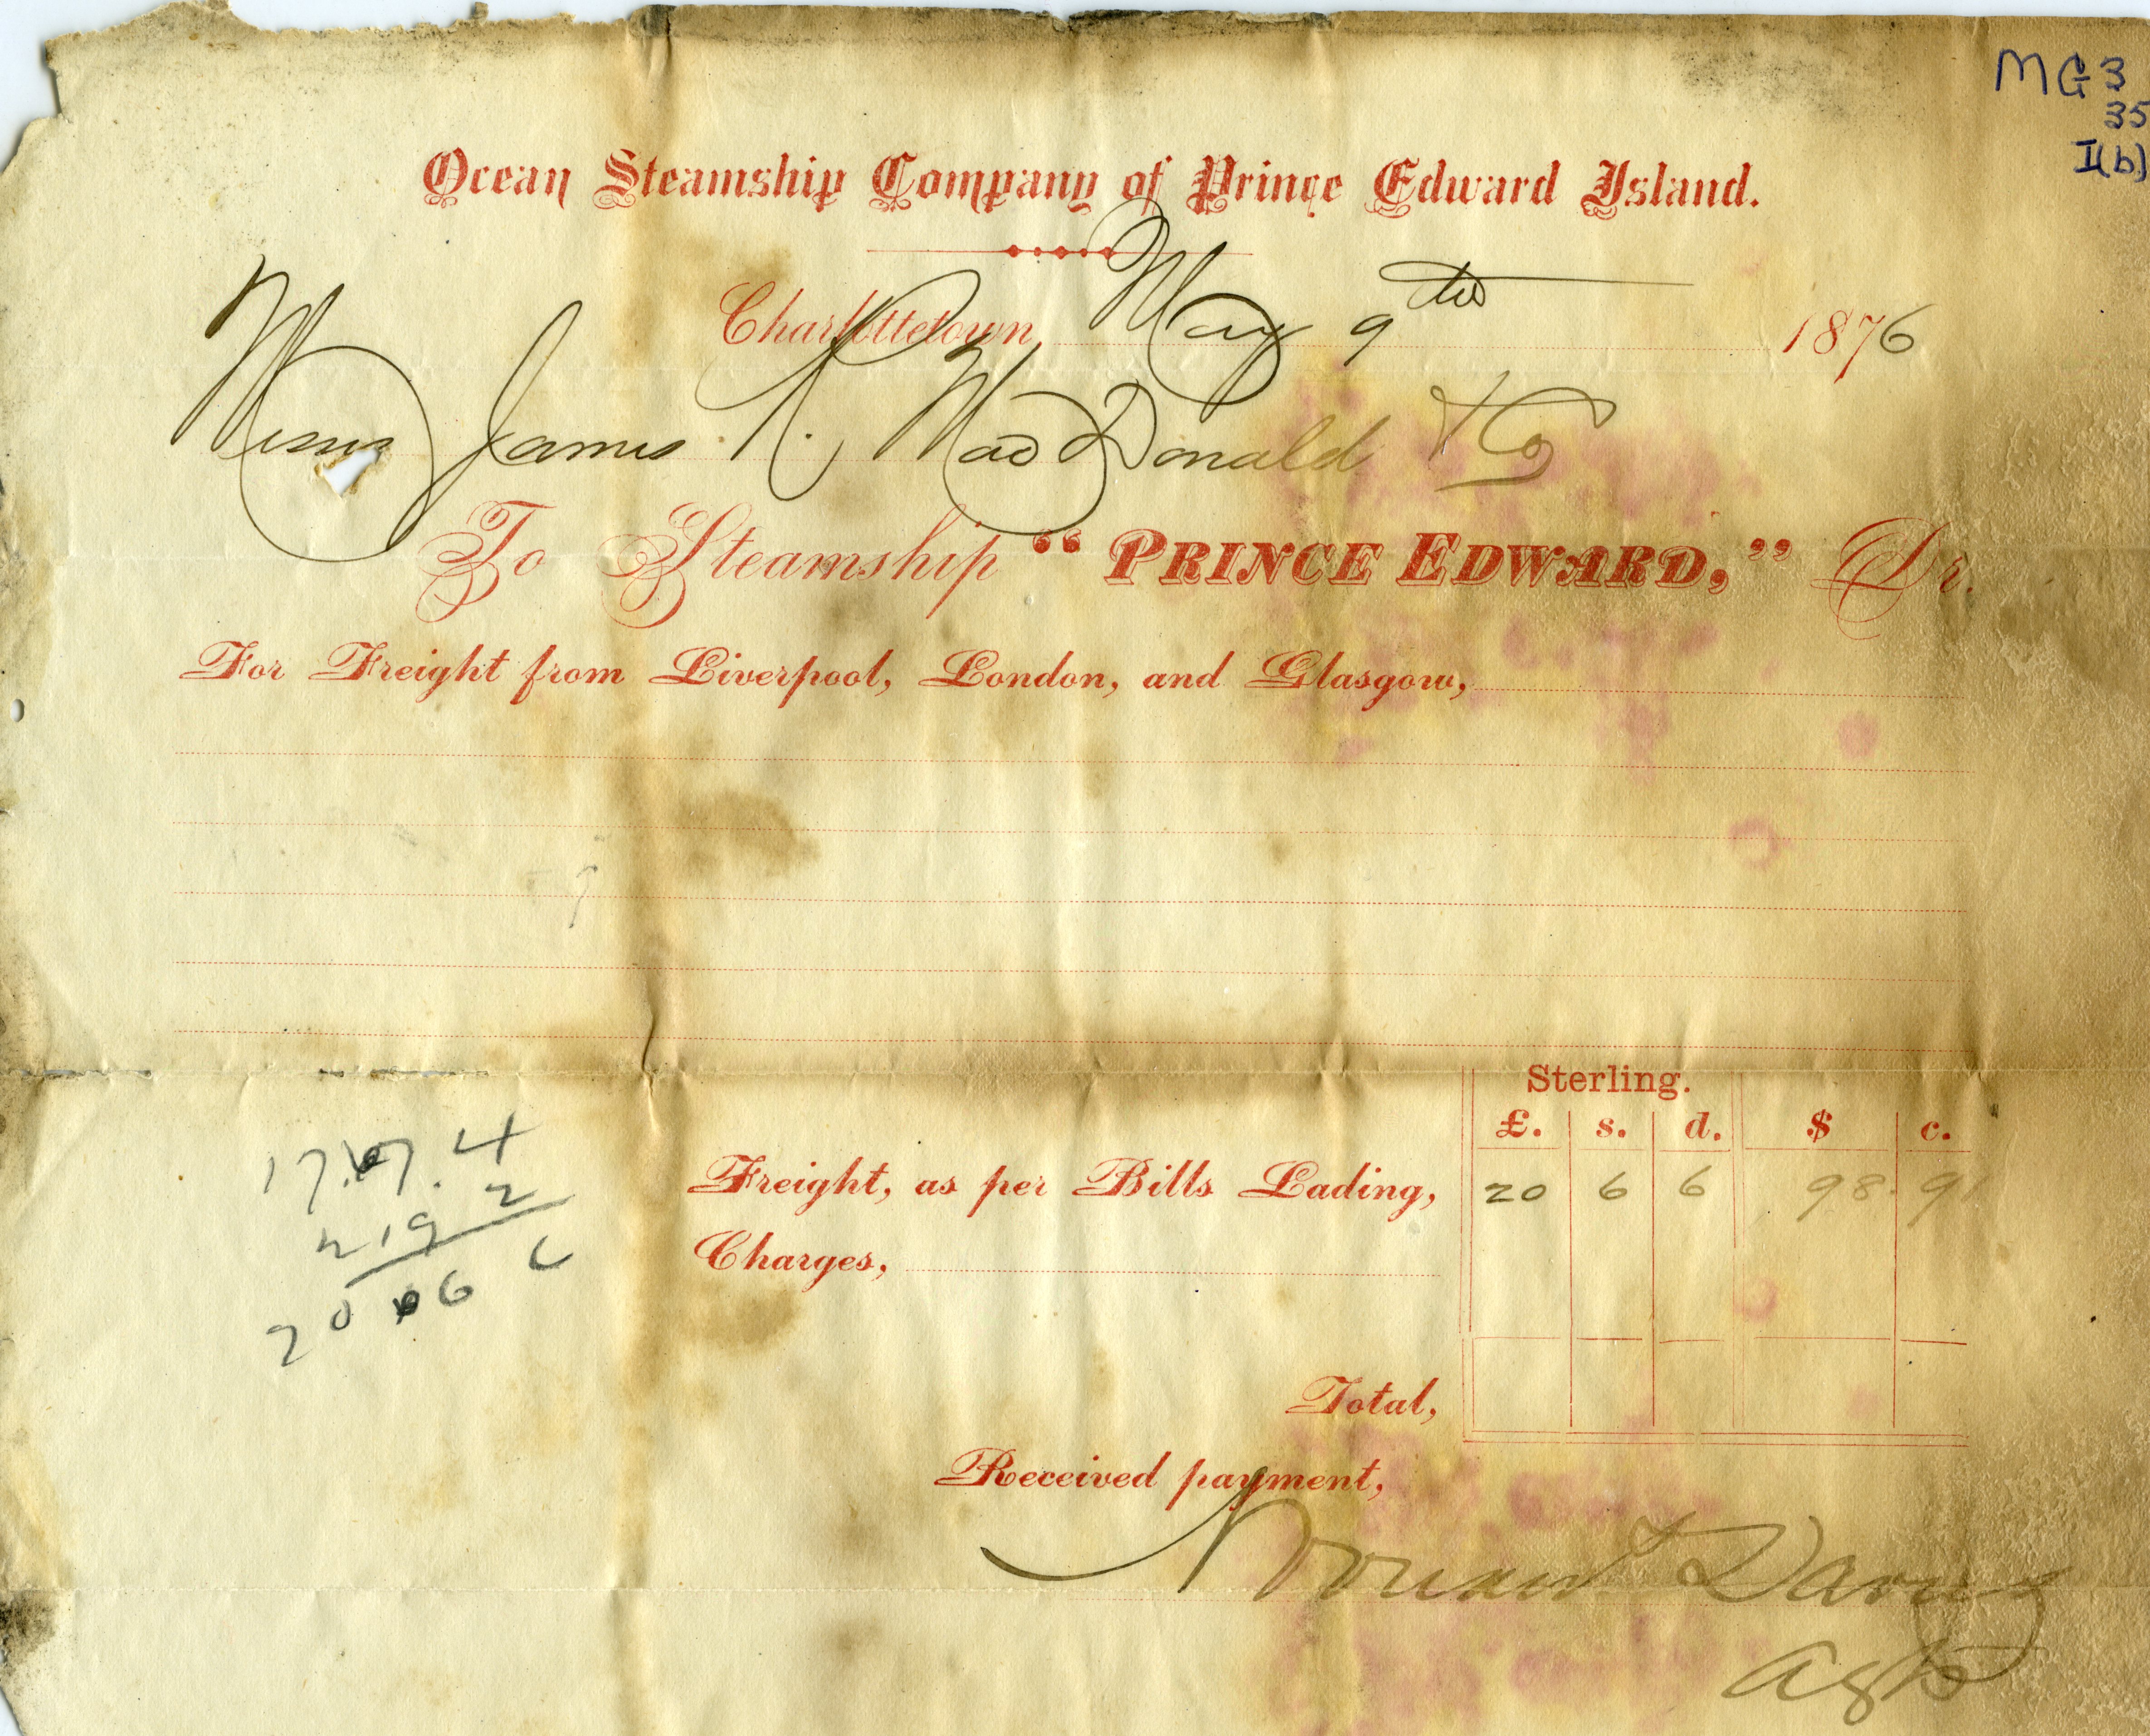 MG3
35
I(b)
Ocean Steamship Company of Prince Edward Island.
Charlottetown, May 9th 1876
Messrs James R. MacDonald & Co
To Steamship "PRINCE EDWARD," Dr.
For Freight from Liverpool, London, and Glasgow,
Sterling.
£. s. d. $ c.
Freight, as per Bills Lading, 20 6 6 98. 91
Charges,
17.07.4
2 19 2
20 06 6
Total,
Received payment,
Agts